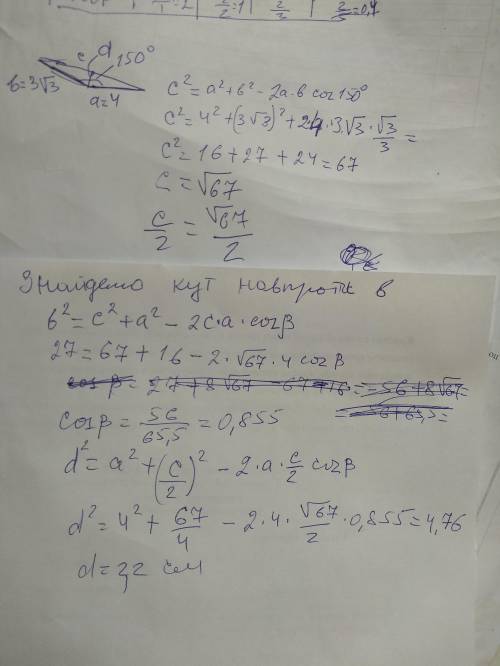 2/2=1 | 2/2 | 2/5=0,4
c d 150°
b=3√3
a=4
c² = a² + b² - 2a·b cos150°
c² = 4² + (3√3)² + 2·4·3·√3·√3/3 =
c² = 16 + 27 + 24 = 67
c = √67
c/2 = √67/2
Знайдемо кут навпроти b
b² = c² + a² - 2c·a·cosβ
27 = 67 + 16 - 2·√67·4 cosβ
cosβ = 56/65,5 = 0,855
d² = a² + (c/2)² - 2·a·c/2 cosβ
d² = 4² + 67/4 - 2·4·√67/2·0,855 = 4,76
d = 2,2 см